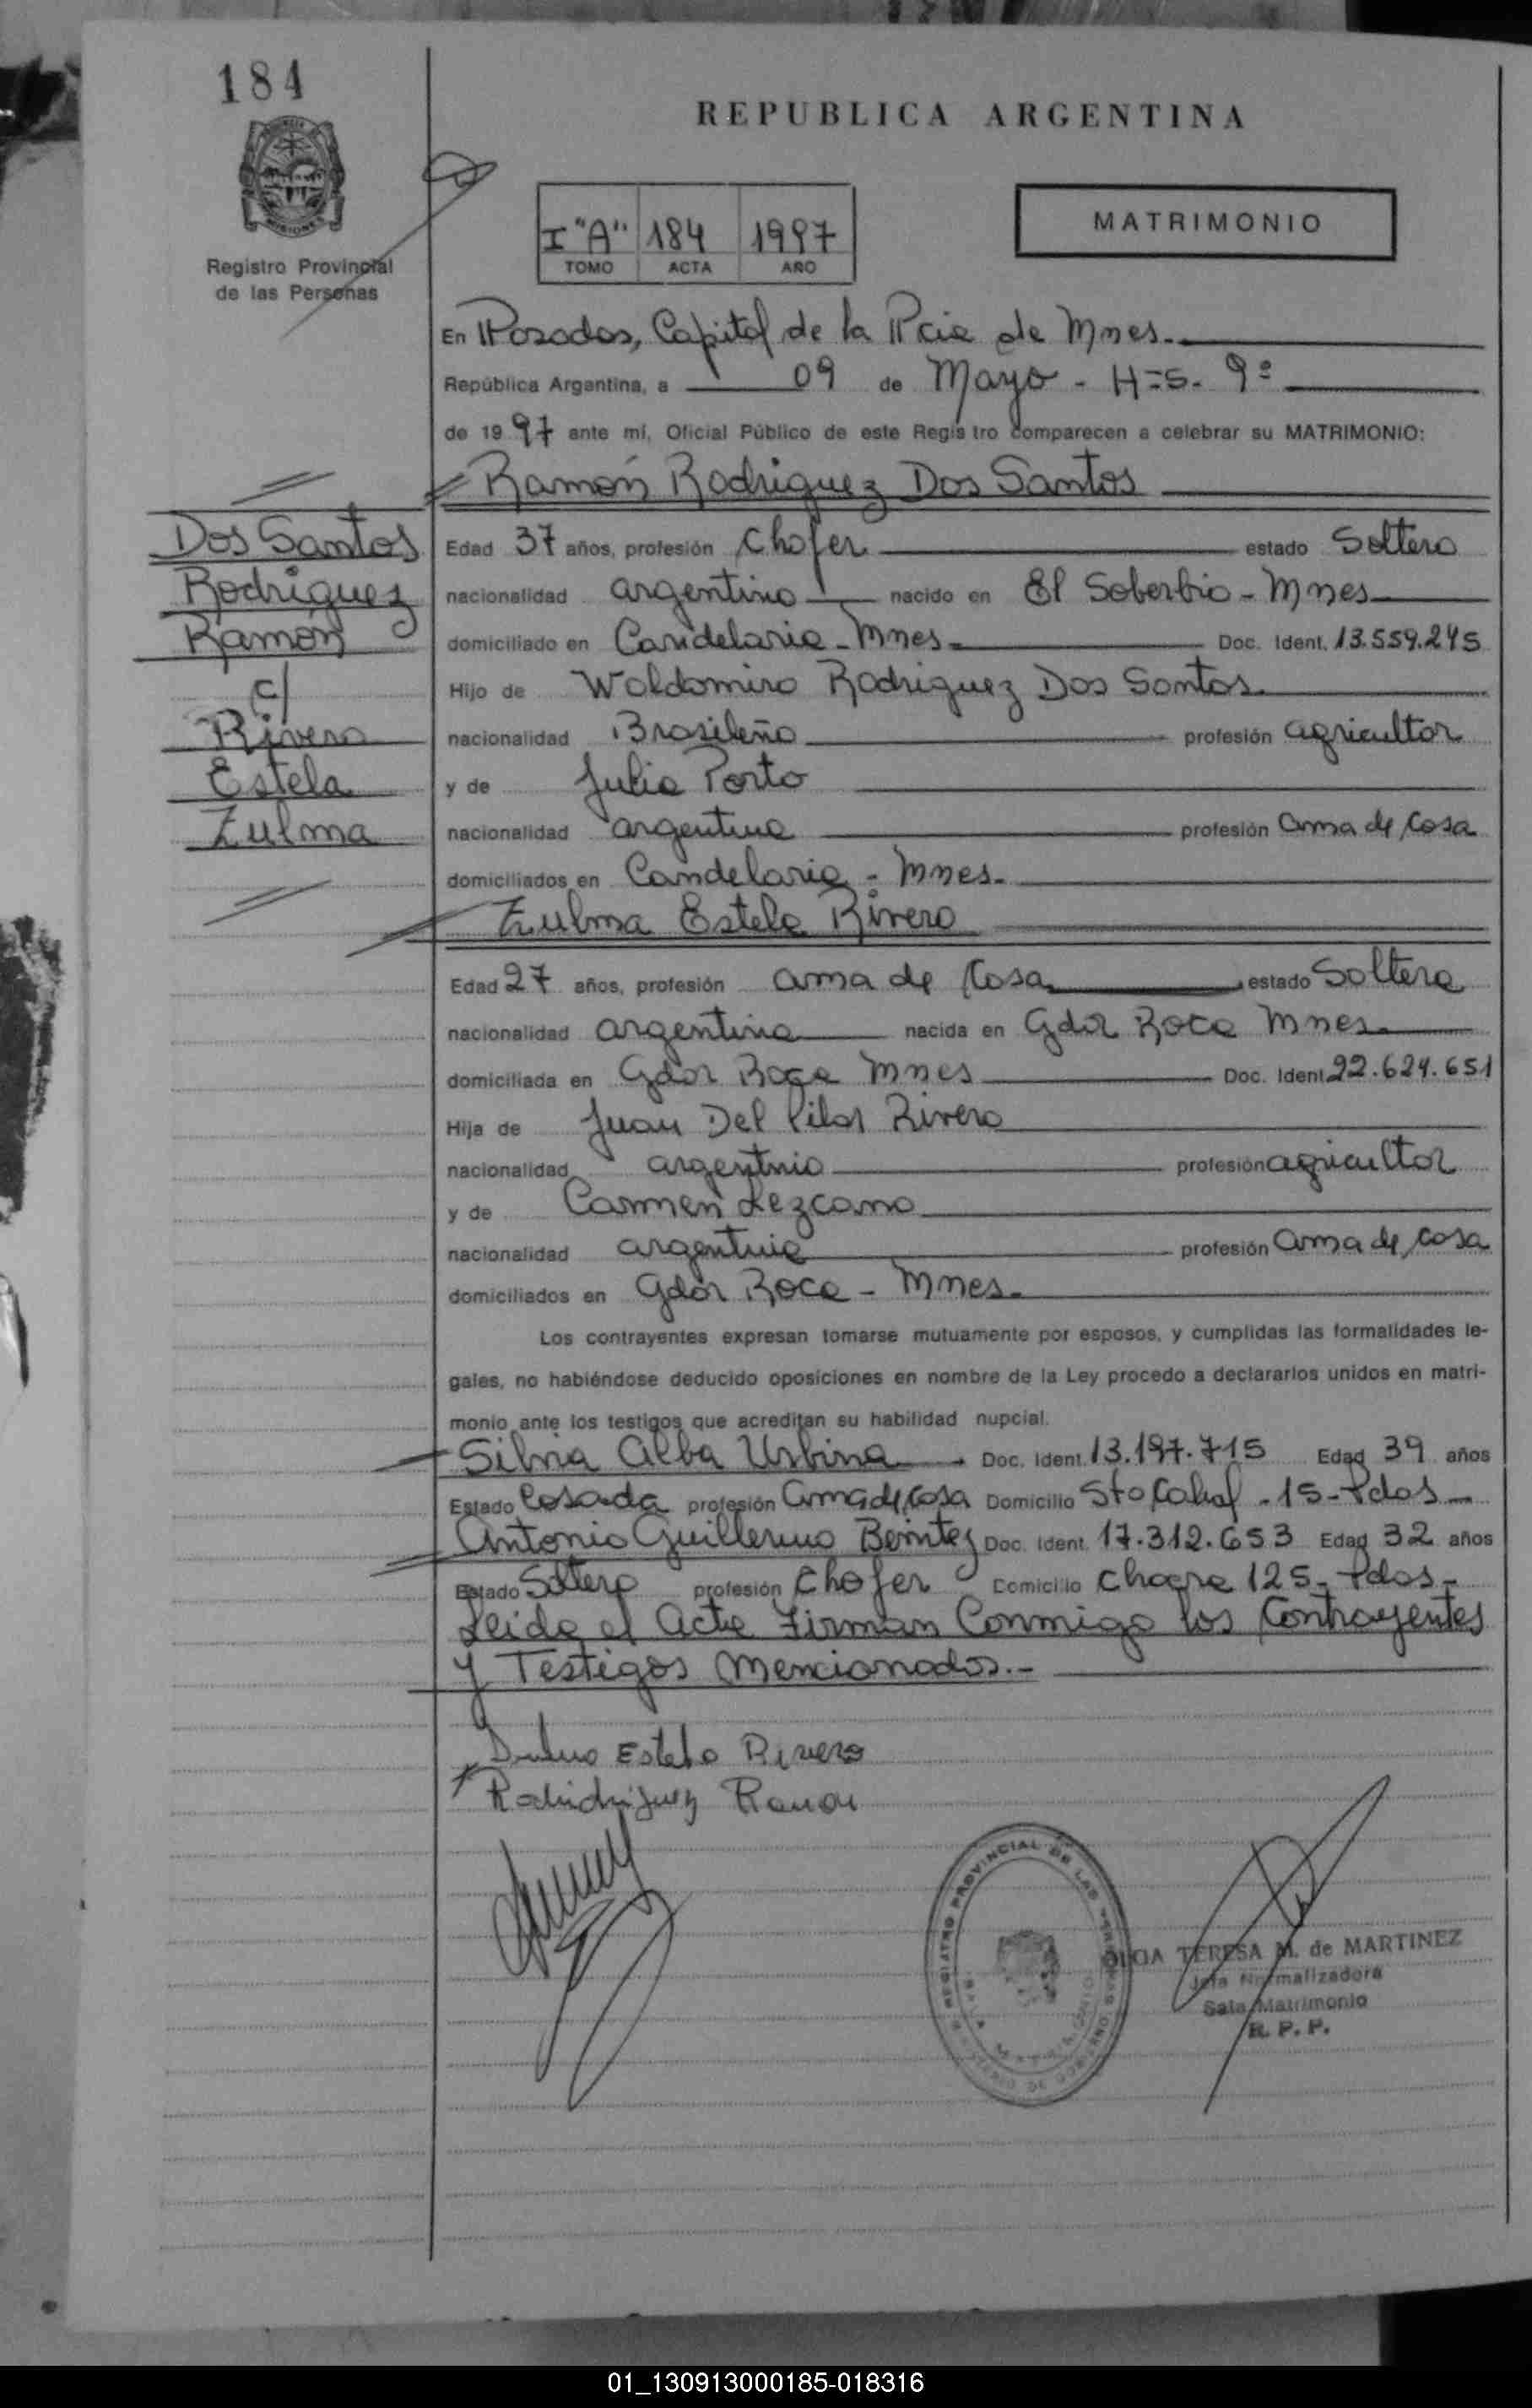 184
REPUBLICA ARGENTINA
MATRIMONIO
I "A" 184 1997
TOMO ACTA AÑO
Registro Provincial
de las Personas
En Posadas, Capital de la Pcia de Mnes.
República Argentina, a 09 de Mayo - H=s. 9º
de 1997 ante mí, Oficial Público de este Registro comparecen a celebrar su MATRIMONIO:
Ramón Rodriguez Dos Santos
Dos Santos
Rodriguez
Ramón
c/
Rivero
Estela
Zulma
Edad 37 años, profesión Chofer estado Soltero
nacionalidad argentino nacido en El Soberbio - Mnes
domiciliado en Candelaria - Mnes - Doc. Ident. 13.559.245
Hijo de Waldomiro Rodriguez Dos Santos
nacionalidad Brasileño profesión agricultor
y de Julia Porto
nacionalidad argentina profesión ama de Casa
domiciliados en Candelaria - Mnes.
Zulma Estela Rivero
Edad 27 años, profesión ama de Casa estado Soltera
nacionalidad argentina nacida en Gdor Roca Mnes
domiciliada en Gdor Roca Mnes Doc. Ident 22.624.651
Hija de Juan Del Pilar Rivero
nacionalidad argentino profesión agricultor
y de Carmen Lezcano
nacionalidad argentina profesión ama de casa
domiciliados en Gdor Roca - Mnes.
Los contrayentes expresan tomarse mutuamente por esposos, y cumplidas las formalidades le-
gales, no habiéndose deducido oposiciones en nombre de la Ley procedo a declararlos unidos en matri-
monio ante los testigos que acreditan su habilidad nupcial.
Silvia Alba Urbina Doc. Ident. 13.197.715 Edad 39 años
Estado Casada profesión ama de casa Domicilio Sto - 15 - Pdas
Antonio Guillermo Benitez Doc. Ident. 17.312.653 Edad 32 años
Estado Soltero profesión Chofer Domicilio Chacra 125 - Pdas -
Leida el Acta Firman Conmigo los Contrayentes
y Testigos Mencionados.-
Estela Rivero
Ramon
REGISTRO PROVINCIAL DE LAS PERSONAS
OLGA TERESA M. de MARTINEZ
Jefa Normalizadora
Sala Matrimonio
R. P. P.
01_130913000185-018316